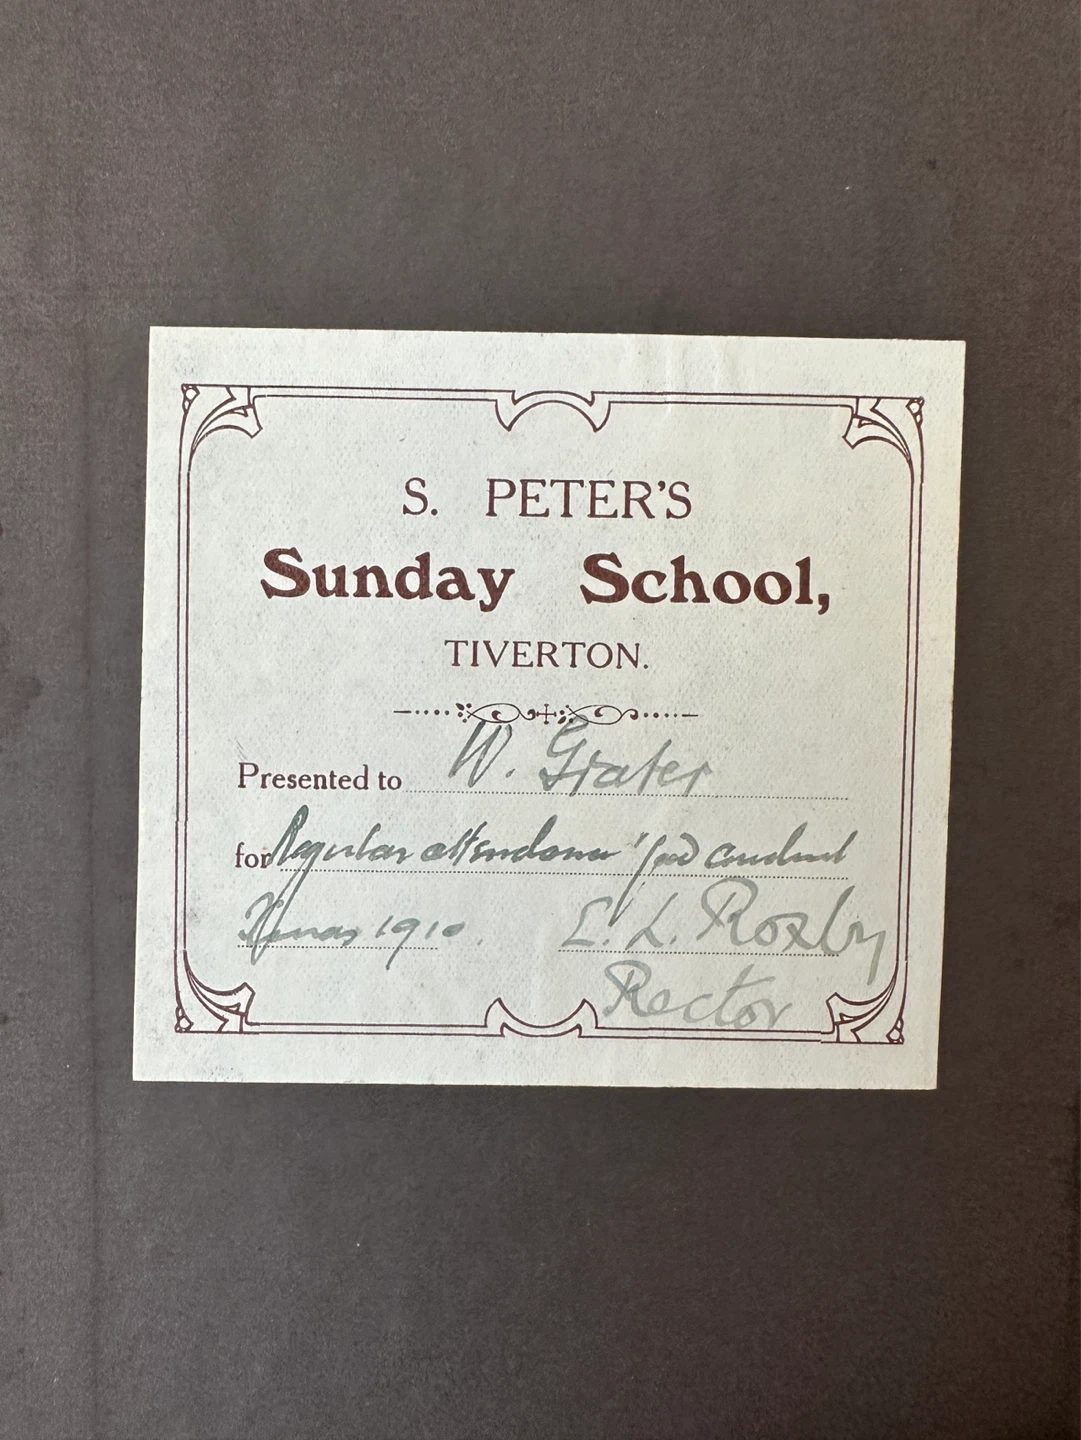 S. PETER'S
Sunday School,
TIVERTON.
Presented to W. Grater
for Regular attendance & good conduct
Xmas 1910. E. L. Roxby
Rector